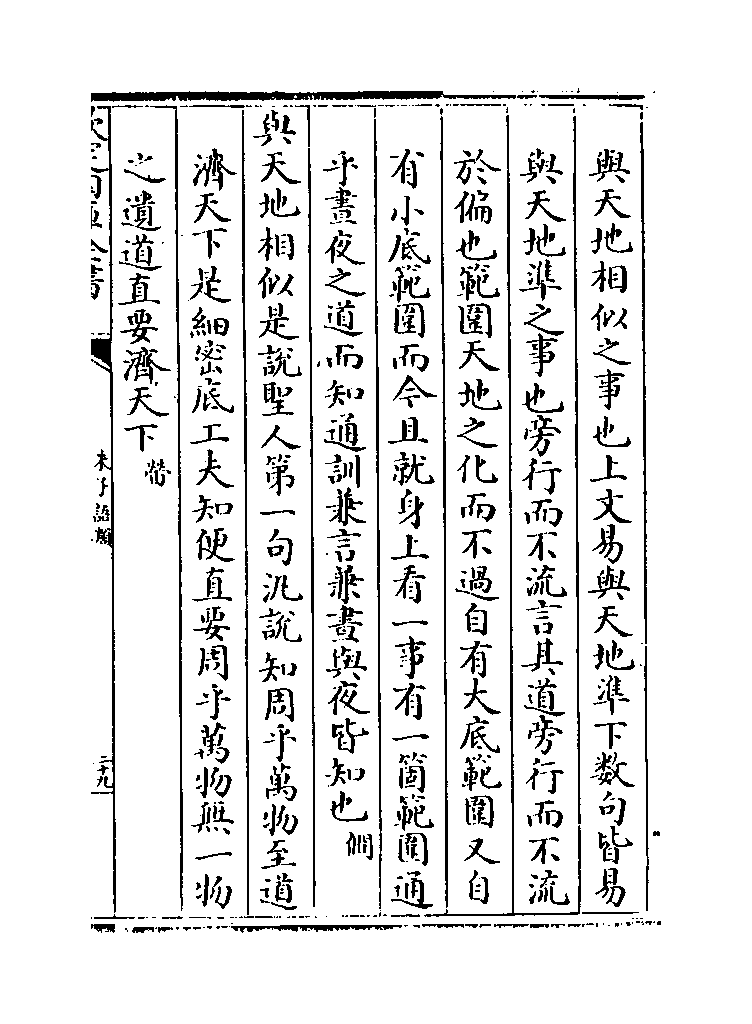 與天地相似之事也上文易與天地準下數句皆易
與天地準之事也旁行而不流言其道旁行而不流
於偏也範圍天地之化而不過自有大底範圍又自
有小底範圍而今且就身上看一事有一箇範圍通
乎晝夜之道而知通訓兼言兼晝與夜皆知也僩
與天地相似是說聖人第一句汎說知周乎萬物至道
濟天下是細密底工夫知便直要周乎萬物無一物
之遺道直要濟天下㽦
欽定四庫全書
朱子語類
二十九